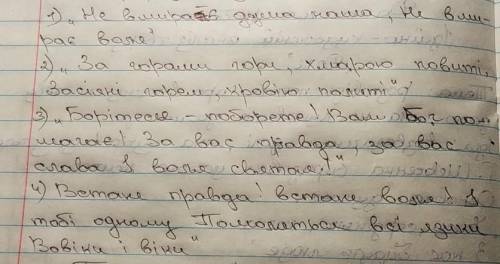 1) „Не вмирає душа наша, Не вми-
рає воля!
2) „За горами гори, хмарою повиті,
Засіяні горем, кровію политі";
3) „Борітеся - поборете! Вам Бог по-
магає! За вас правда, за вас
слава І воля святая!"
4) Встане правда! встане воля! І
тобі одному Помоляться всі язики
Вовіки і віки"